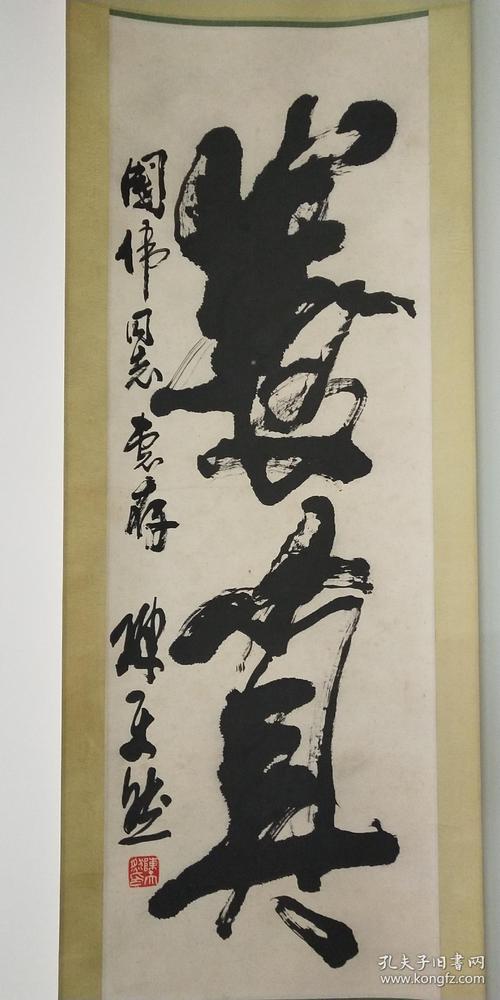 養真
國伟同志惠存
陳天然
孔夫子旧书网
www.kongfz.com